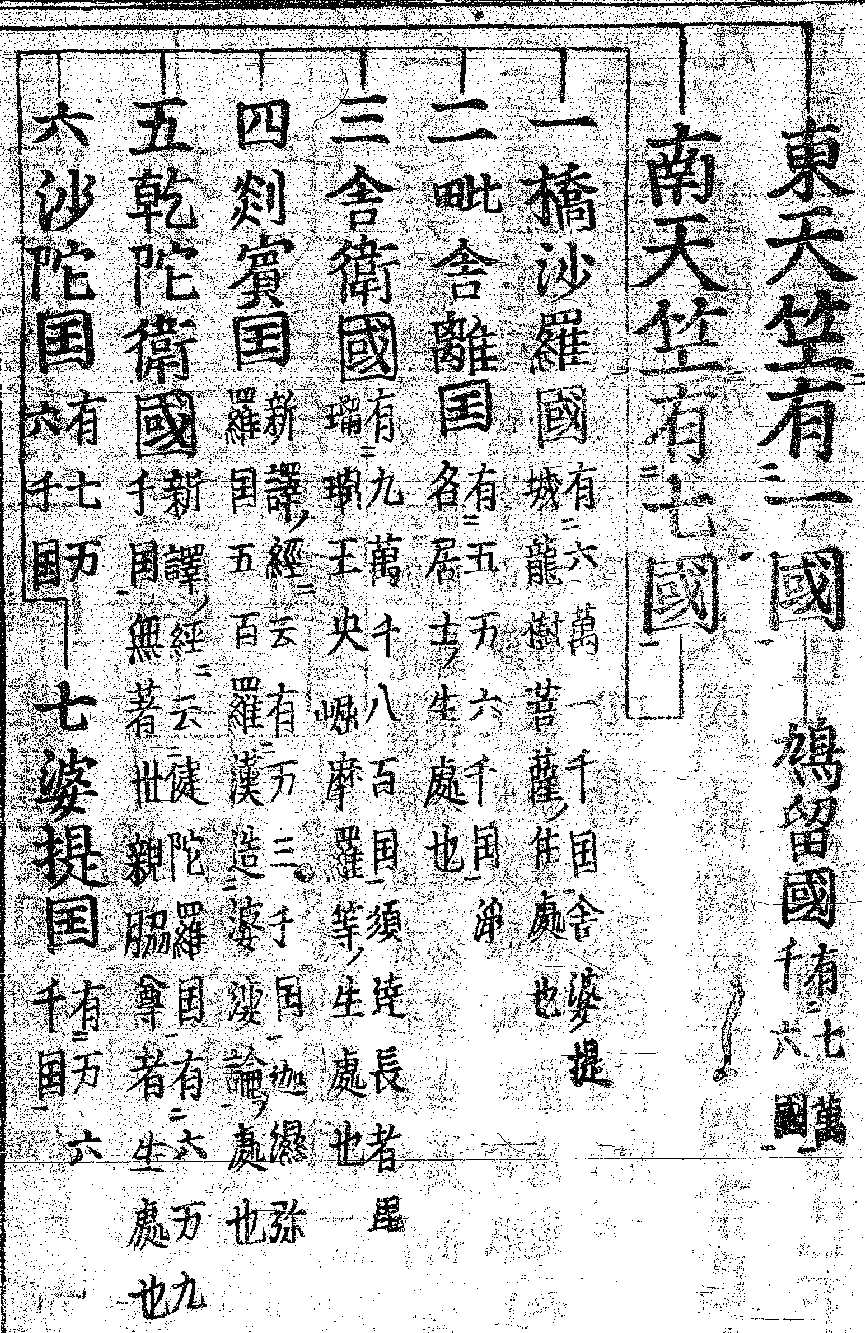 東天竺有一國 鳩留國 有七萬千六國
南天竺有七國
一橋沙羅國 有六萬一千国舎婆提城龍樹菩薩ノ住處也
二毗舎離国 有五万六千国浄名居士ノ生處也
三舎衛國 有九萬千八百国須達長者毘瑠璃王央崛摩羅等ノ生處也
四罽賓国 新譯ノ經云有万三千国迦濕弥羅国五百羅漢造婆沙論ノ處也
五乾陀衛國 新譯ノ經云健陀羅国有六万九千国無著世親脇尊者生處也
六沙陀国 有七万六千国 七婆提国 有万六千国